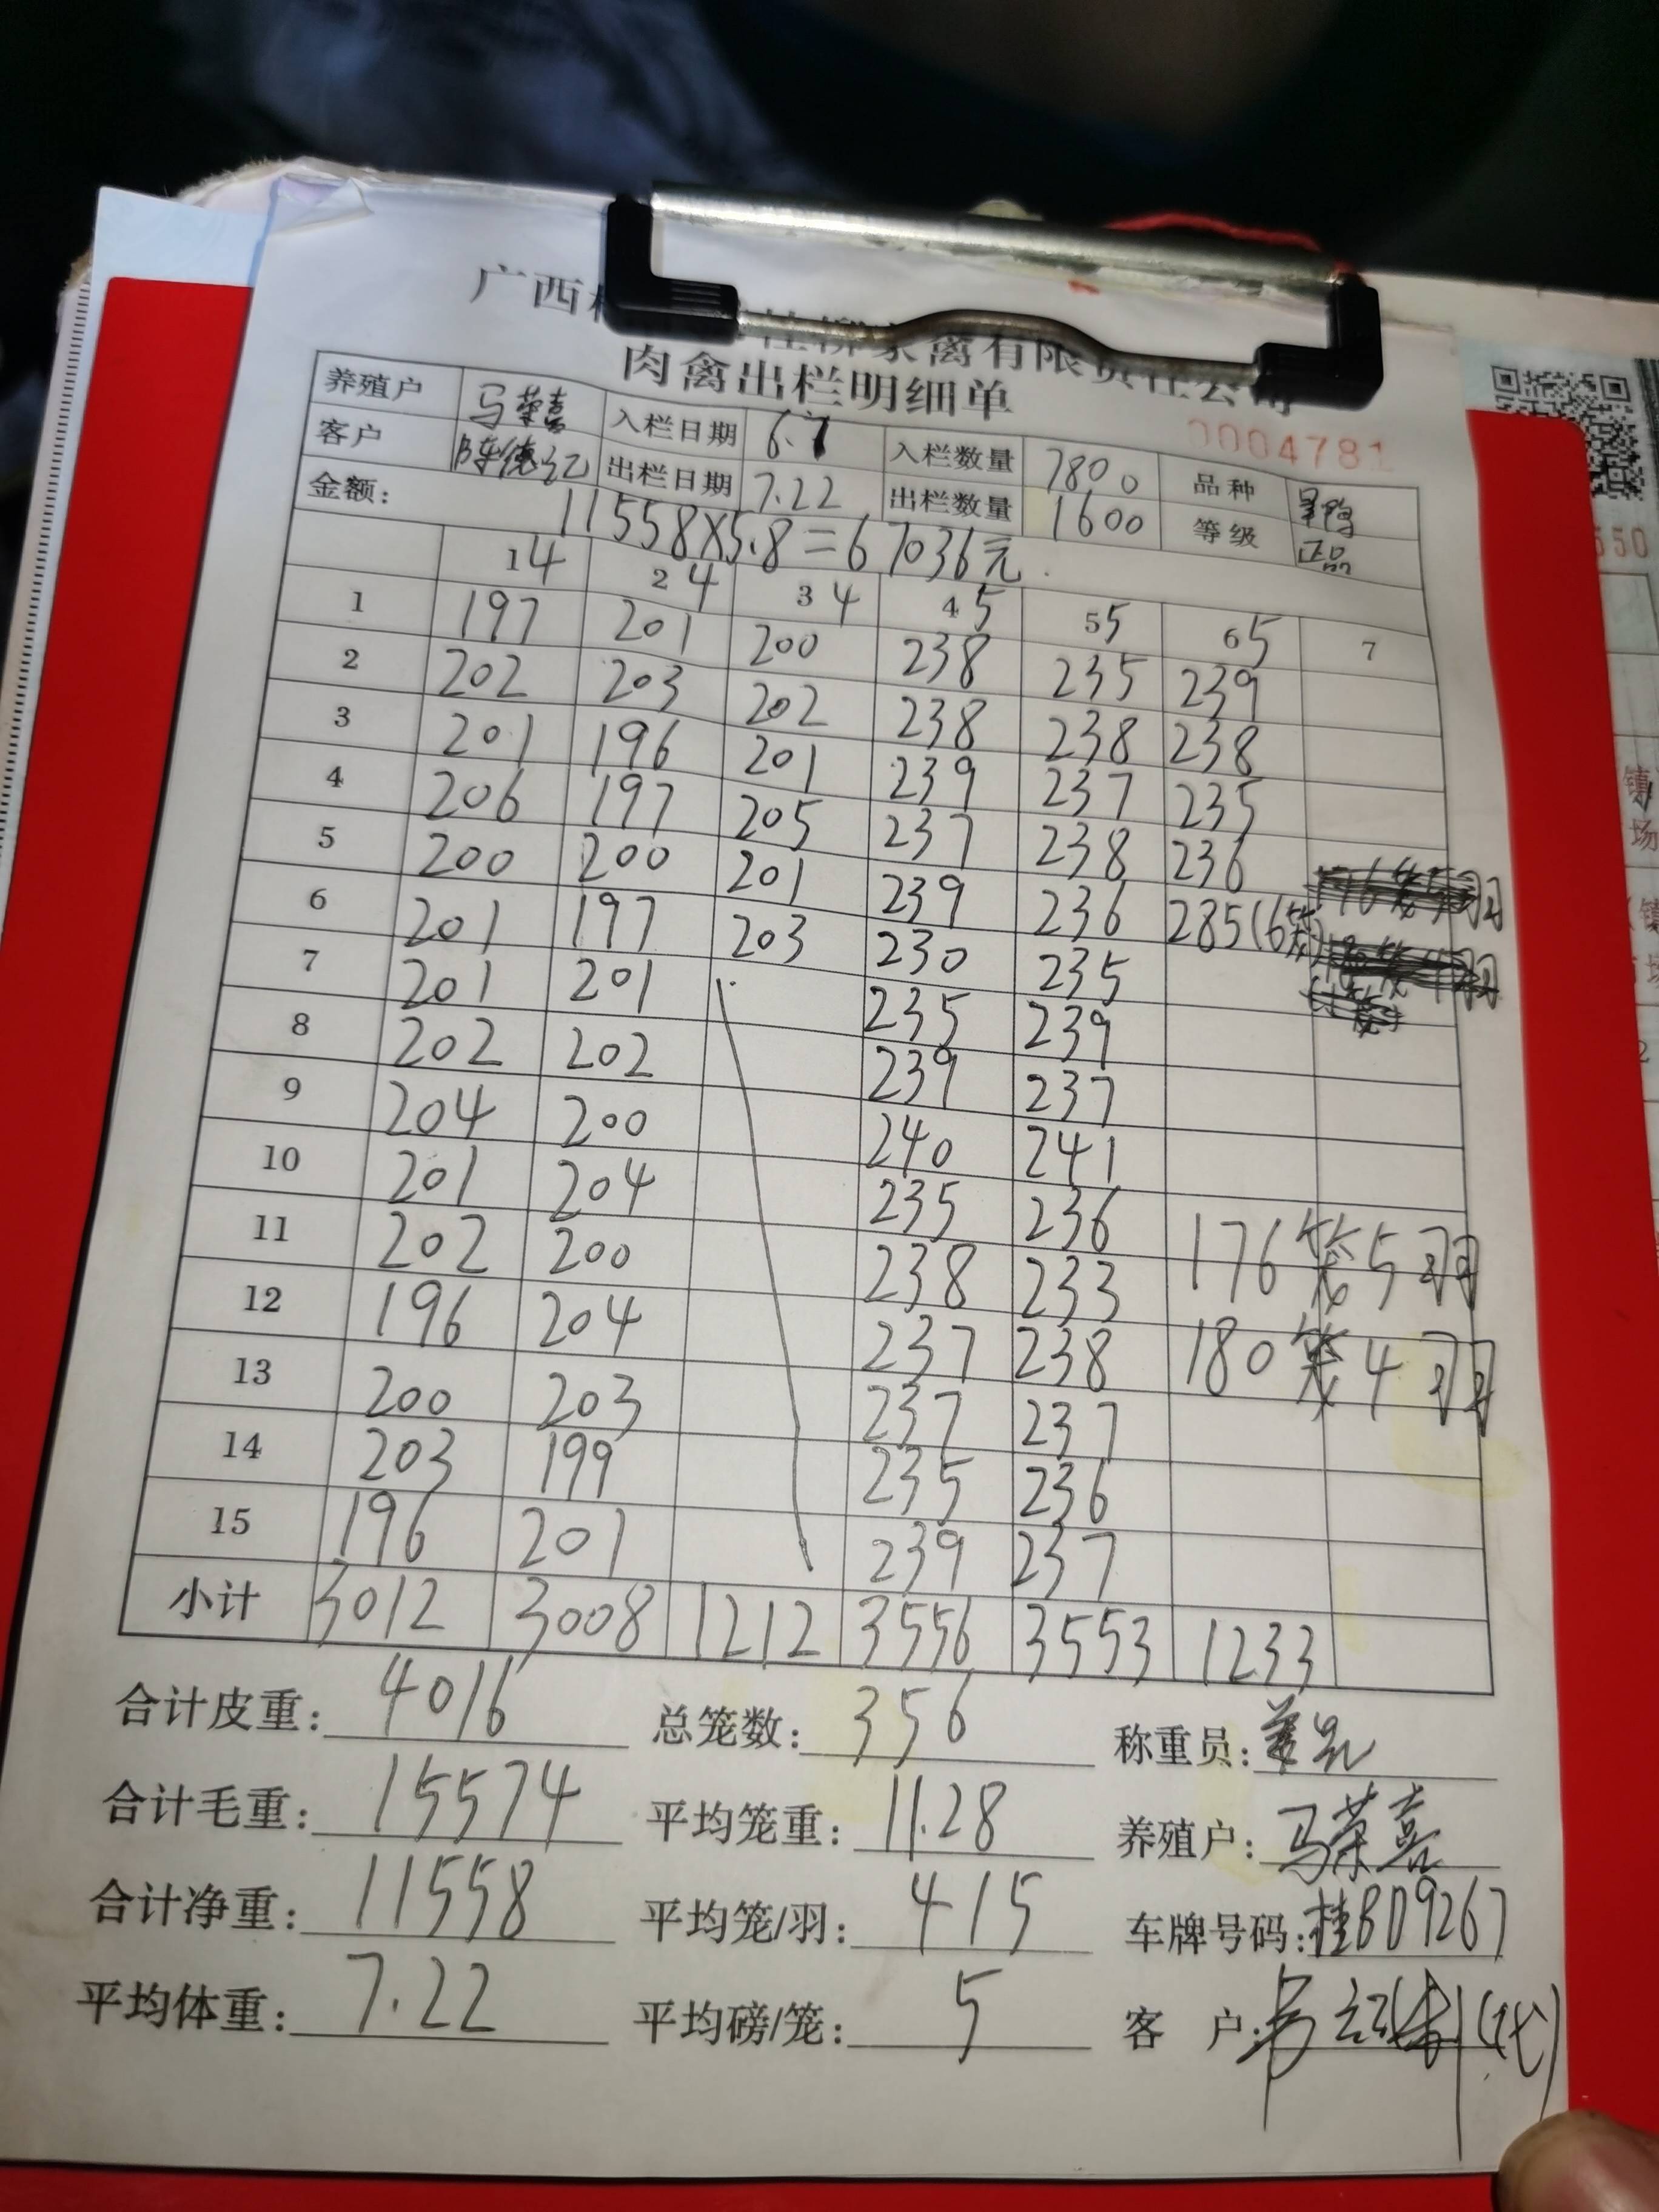 广西
桂柳家禽有限责任公司
肉禽出栏明细单
0004781
养殖户 马荣喜 入栏日期 6.7 入栏数量 7800 品种
客户 陈德 出栏日期 7.22 出栏数量 1600 等级 正品
金额: 11558×5.8=67036元
1 4 2 4 3 4 4 5 5 5 6 5 7
1 197 201 200 238 235 239
2 202 203 202 238 238 238
3 201 196 201 239 237 235
4 206 197 205 237 238 236
5 200 200 201 239 236 285(6笼)
6 201 197 203 230 235
7 201 201 235 239
8 202 202 239 237
9 204 200 240 241
10 201 204 235 236
11 202 200 238 233 176笼5羽
12 196 204 237 238 180笼4羽
13 200 203 237 237
14 203 199 235 236
15 196 201 239 237
小计 3012 3008 1212 3556 3553 1233
合计皮重: 4016 总笼数: 356 称重员:
合计毛重: 15574 平均笼重: 11.28 养殖户: 马荣喜
合计净重: 11558 平均笼/羽: 415 车牌号码: 桂BD9267
平均体重: 7.22 平均磅/笼: 5 客户: (代)
550
镇
场